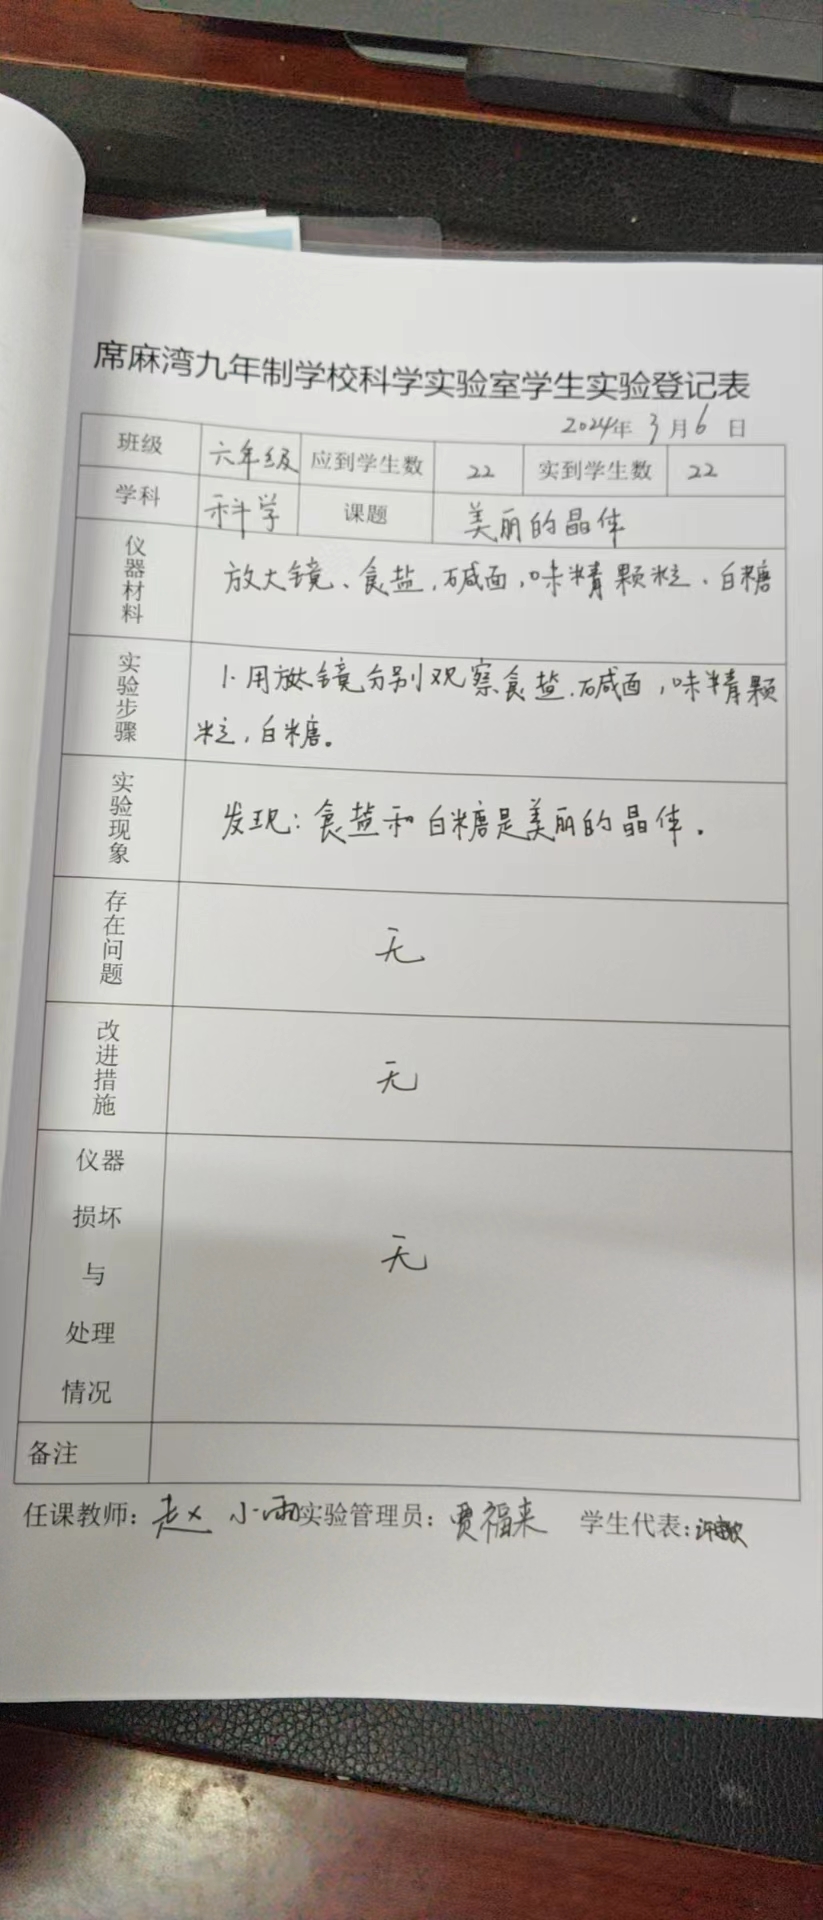 席麻湾九年制学校科学实验室学生实验登记表
2024年3月6日
班级 六年级 应到学生数 22 实到学生数 22
学科 科学 课题 美丽的晶体
仪器材料 放大镜、食盐,碱面,味精颗粒、白糖
实验步骤 1.用放大镜分别观察食盐、碱面,味精颗
粒,白糖。
实验现象 发现:食盐和白糖是美丽的晶体.
存在问题 无
改进措施 无
仪器
损坏
与
处理
情况
无
备注
任课教师:赵小雨 实验管理员:贾福来 学生代表: